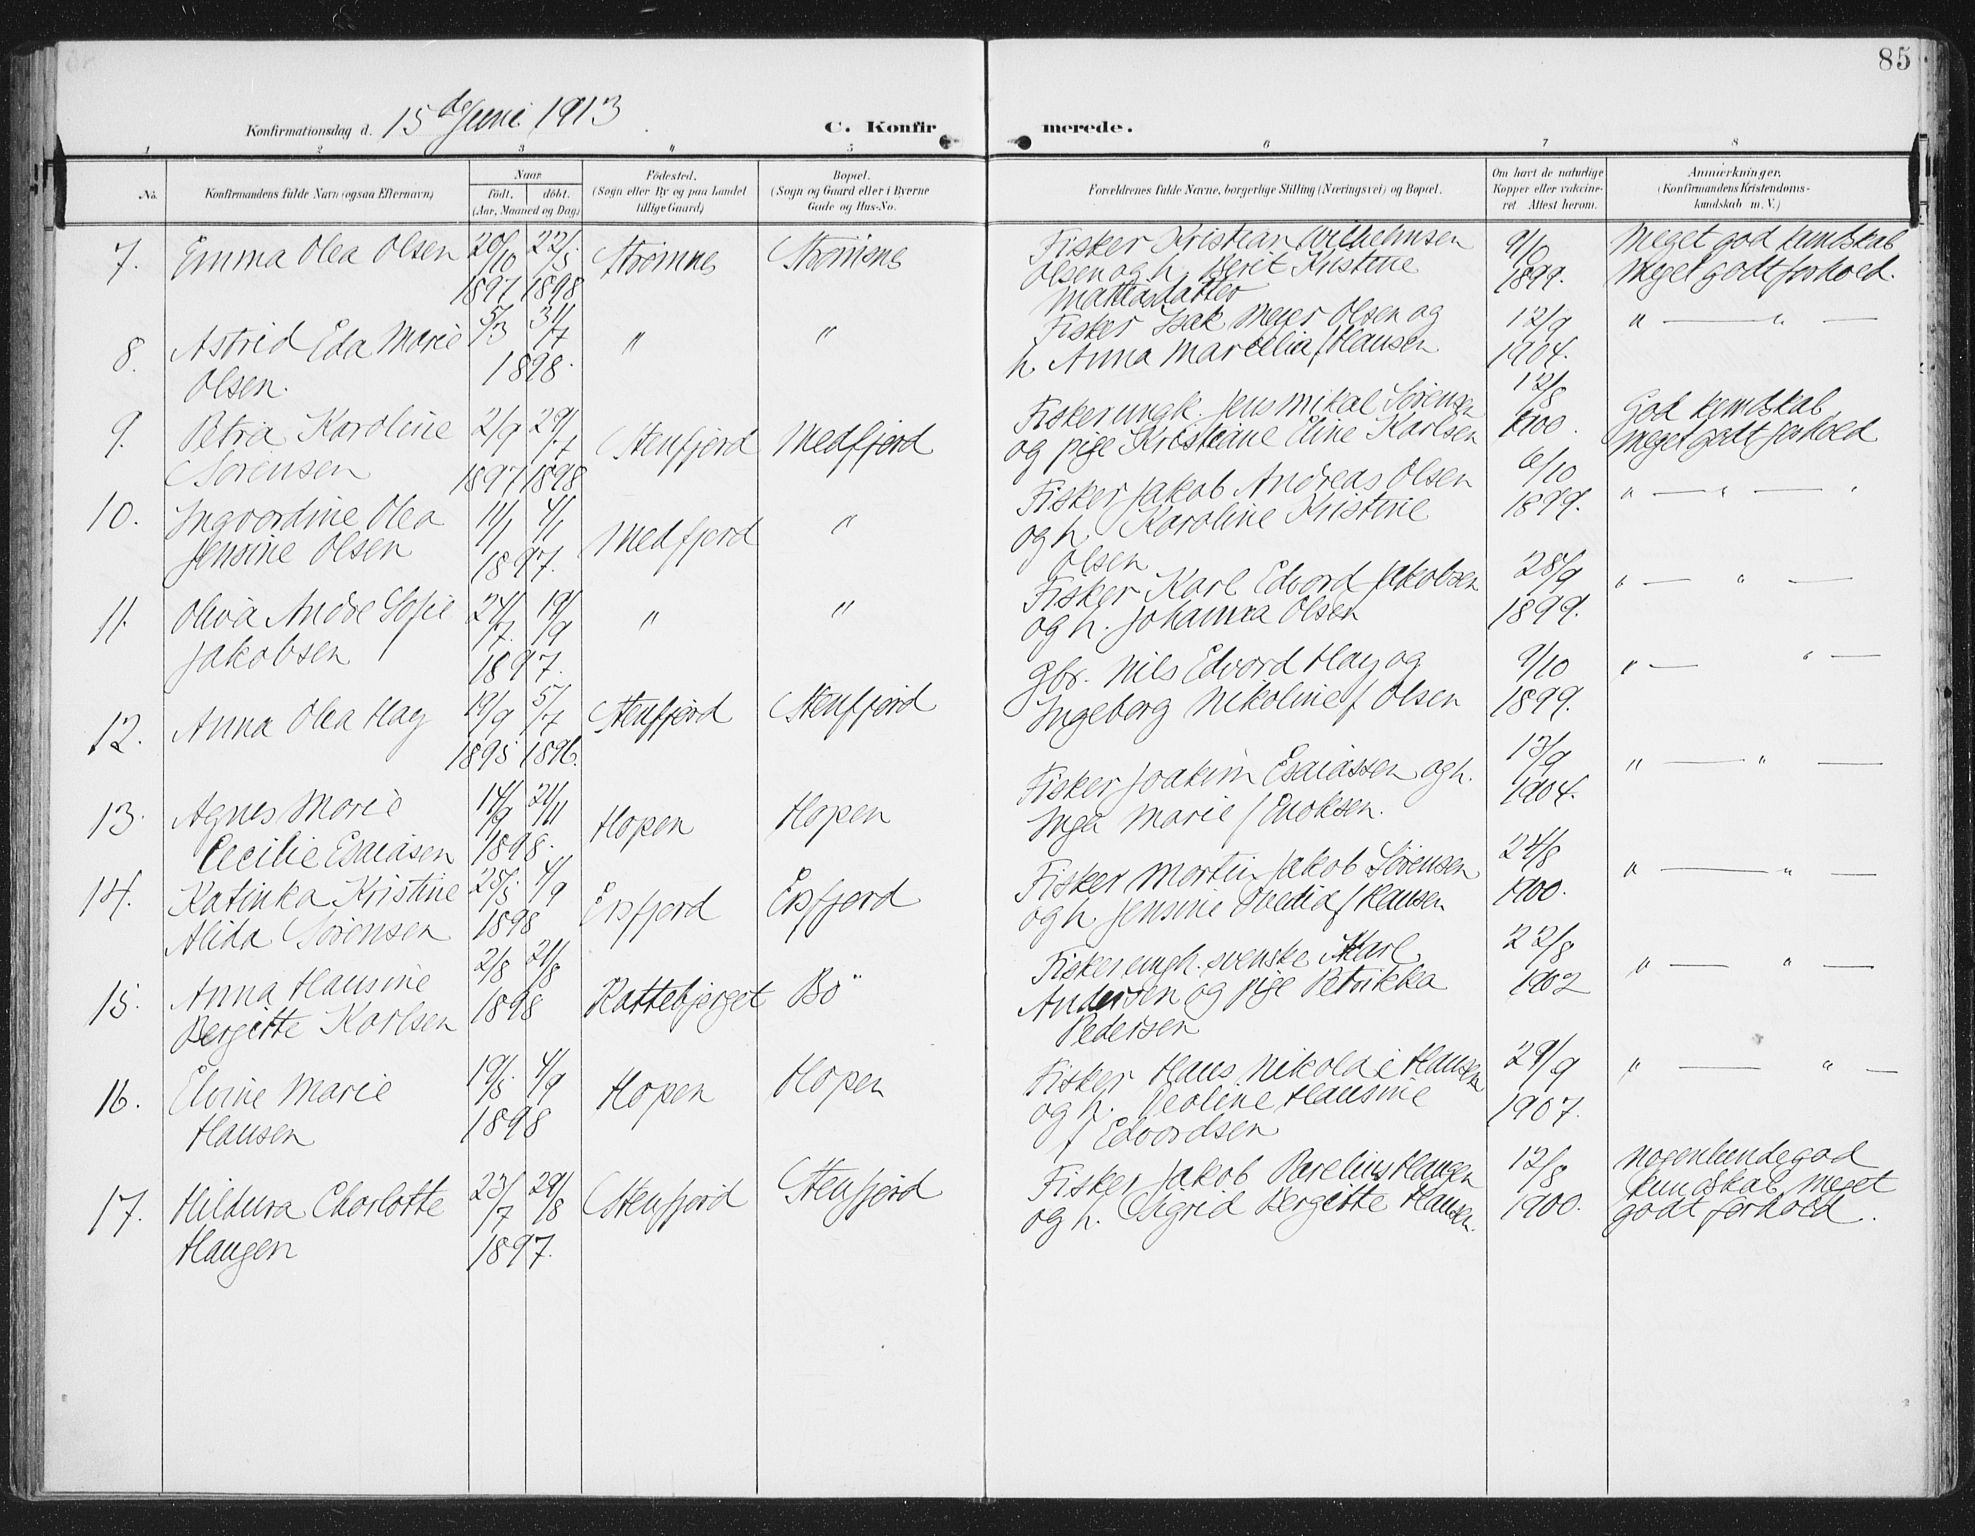 85
Konfirmationsdag d. 15de Juni 1913
C. Konfirmerede.
1 2 3 4 5 6 7 8
No. Konfirmandens fulde Navn (ogsaa Efternavn) Naar født. døbt. (Aar, Maaned og Dag) Fødested. (Sogn eller By og paa Landet tillige Gaard) Bopæl. (Sogn og Gaard eller i Byerne Gade og Hus-No. Forældrenes fulde Navne, borgerlige Stilling (Næringsvei) og Bopæl. Om havt de naturlige Kopper eller vakcineret. Attest herom. Anmærkninger. (Konfirmandens Kristendomskundskab m. V.)
7. Emma Olea Olsen 20/10 1897 22/5 1898 Strømnes Strømsnes Fisker Kristian Wilhelmsen 9/10 Meget god kundskab
Olsen og h. Berit Kristine 1899. Meget godt forhold.
Mattisdatter
8. Astrid Eda Marie 5/3 31/7 " " Fisker Isak Meier Olsen og 12/9 " — " —
Olsen. 1898. h. Anna Marcelia f Hansen 1904.
9. Petra Karoline 2/9 29/7 Stenfjord Medfjord Fisker ungk. Jens Mikal Sørensen 12/8 God kundskab
Sørensen 1897 1898 og pige Kristiane Eline Karlsen 1900. Meget godt forhold
10. Ingvordine Olea 11/1 4/1 Medfjord " Fisker Jakob Andreas Olsen 6/10 " — " — "
Jensine Olsen 1897. og h. Karoline Kristine 1899.
Olsen
11. Oliva Andre Sofie 24/7 19/9 " " Fisker Karl Edvard Jakobsen 28/9 " — " —
Jakobsen 1897. og h. Johanna Olsen 1899.
12. Anna Olea Hay 19/9 1895 5/7 1896. Stenfjord Stenfjord Gbr. Nils Edvard Hay og 9/10 " — " —
Ingeborg Nikoline f Olsen 1899.
13. Agnes Marie 14/9 21/11 Hopen Hopen Fisker Joakim Esaiassen og h. 13/9 " — " —
Cecilie Esaiasen 1898. Inga Marie f Enoksen. 1904.
14. Katinka Kristine 25/5 4/9 Ersfjord Ersfjord Fisker Martin Jakob Sørensen 24/8 " — " —
Alida Sørensen 1898 og h. Jensine f Hansen 1900.
15. Anna Hansine 2/8 21/8 Rattebjerget Bø Fisker ungk. svenske Karl 22/8 " — " —
Bergitte Karlsen 1898 Andersen og pige Petrikka 1902
Pedersen
16. Elvine Marie 19/5 4/9 Hopen Hopen Fisker Hans Nikolai Hansen 29/9 " — " —
Hansen 1898 og h. Peoline Hansine 1907.
f Edvardsen
17. Hildura Charlotte 23/7 29/8 Stenfjord Stenfjord Fisker Jakob Parelius Haugen 12/8 Nogenlunde god
Haugen 1897. og h. Sigrid Bergitte Hansen. 1900. kundskab meget
godt forhold.